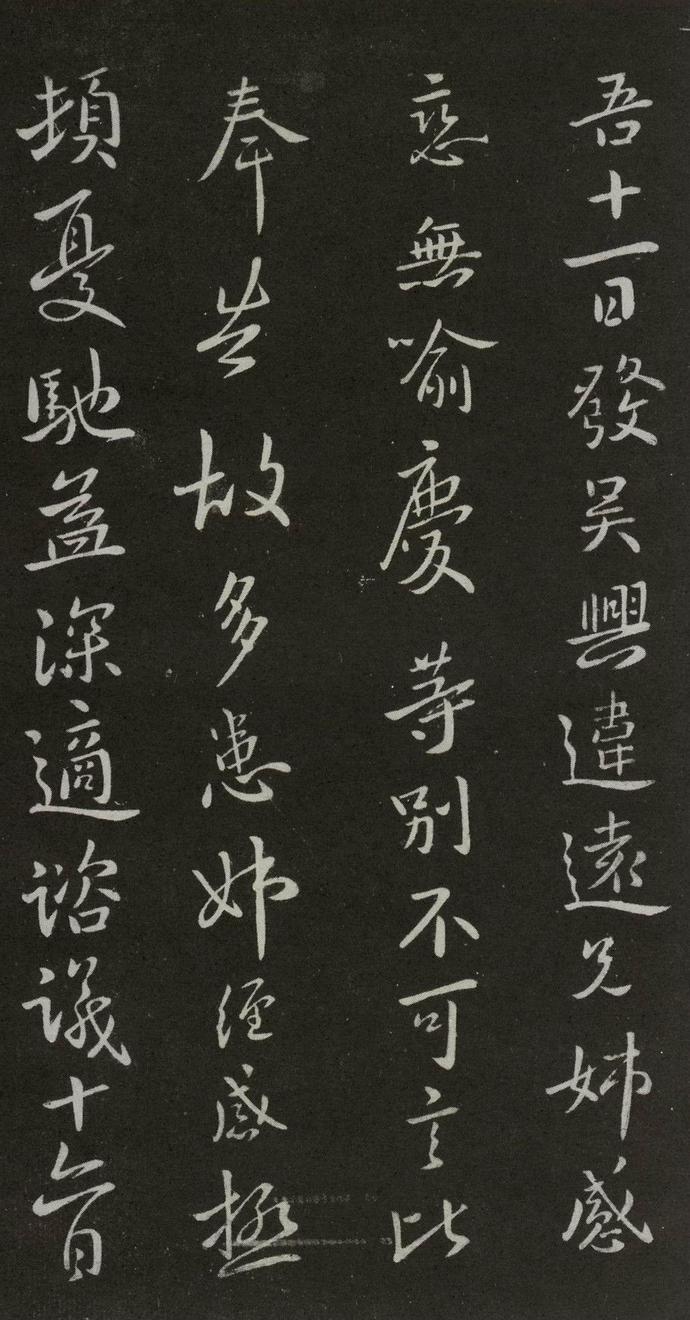 吾十一日發吴興違遠兄姊感
戀無喻慶等別不可言比
奉告故多患姊經感極
頓憂馳益深適諮議十六日